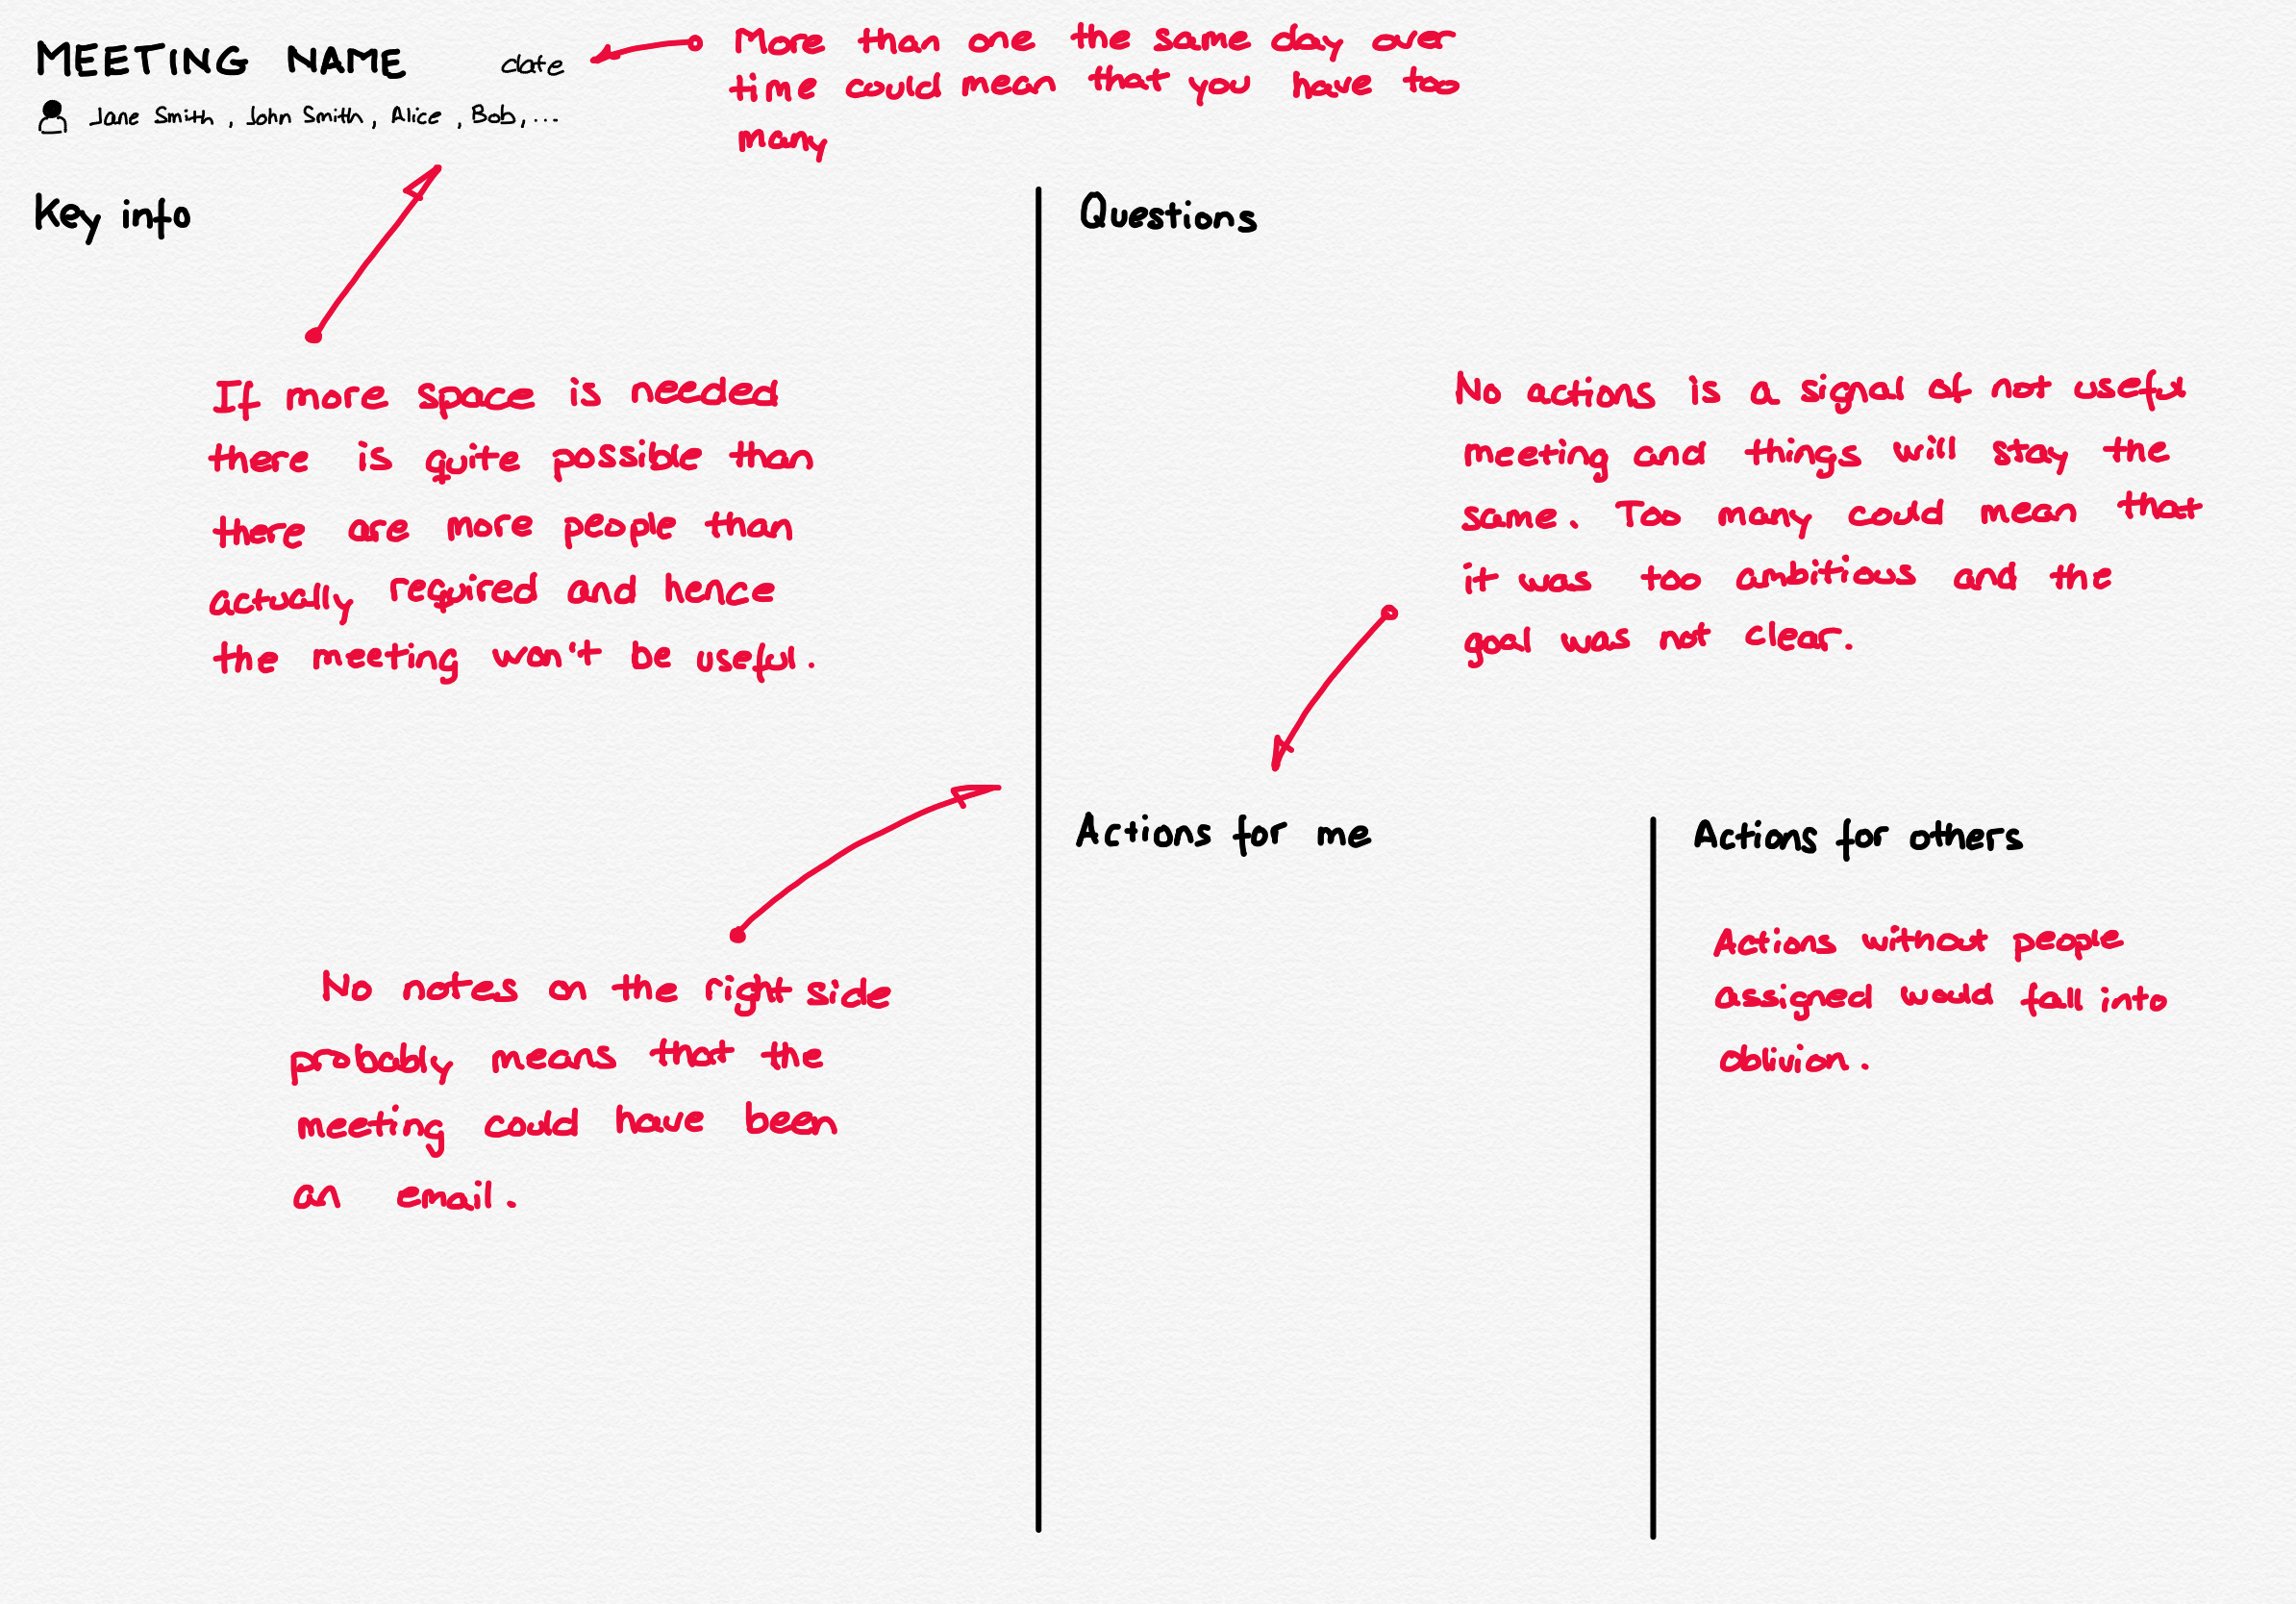 MEETING NAME date
Jane Smith, John Smith, Alice, Bob, ...
More than one the same day over
time could mean that you have too
many
Key info
If more space is needed
there is quite possible than
there are more people than
actually required and hence
the meeting won't be useful.
No notes on the right side
probably means that the
meeting could have been
an email.
Questions
No actions is a signal of not useful
meeting and things will stay the
same. Too many could mean that
it was too ambitious and the
goal was not clear.
Actions for me
Actions for others
Actions without people
assigned would fall into
oblivion.